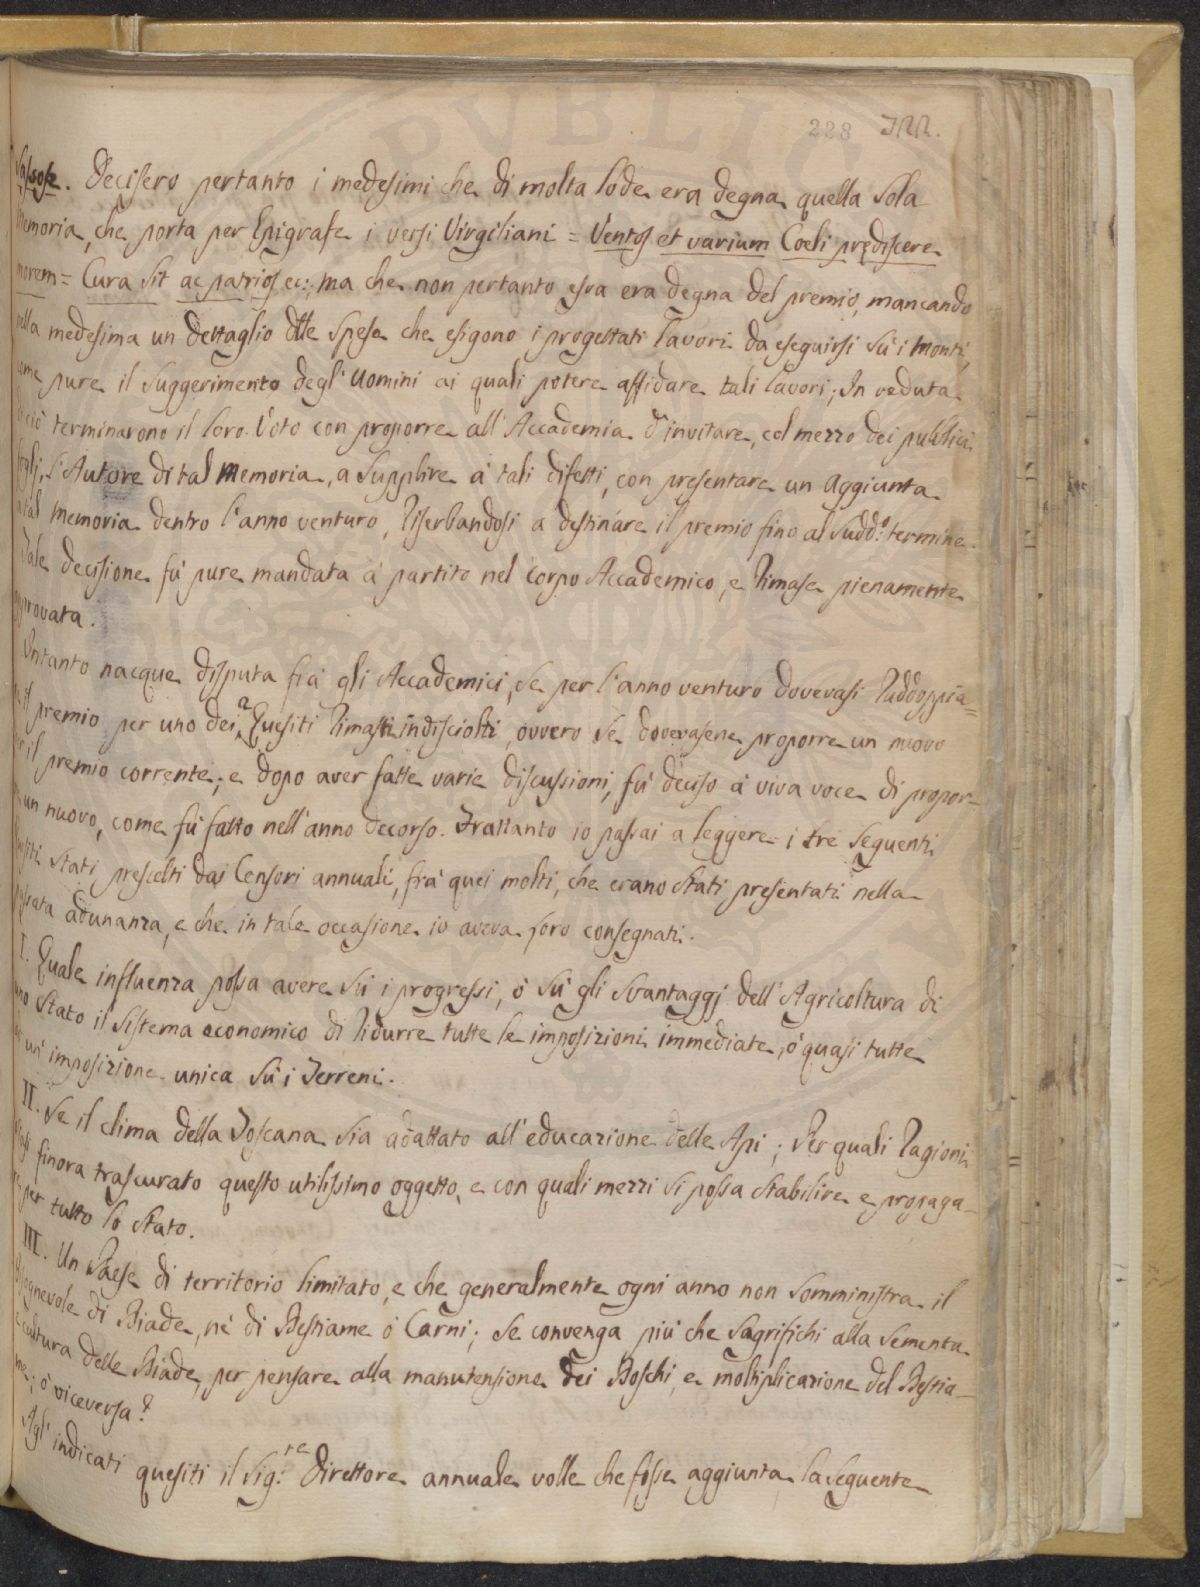 228 122.
Sassose. Decisero pertanto i medesimi che di molta lode era degna quella sola
Memoria, che porta per Epigrafe i versi Virgiliani = Ventos et varium Coeli prędiscere
morem = Cura sit ac patrios ec:, ma che non pertanto essa era degna del premio, mancando
nella medesima un dettaglio dlle spese che esigono i progettati lavori da eseguirsi sù i monti,
come pure il suggerimento degl' uomini ai quali potere affidare tali lavori; In veduta
di ciò terminarono il loro Voto con proporre all' Accademia d' invitare, col mezzo dei pubblici
fogli, l'Autore di tal Memoria, a supplire à tali difetti, con presentare un Aggiunta
a tal Memoria dentro l'anno venturo, Riserbandosi a destinare il premio fino al sudd:º termine.
Tale decisione fù pure mandata à partito nel Corpo Accademico, e Rimase pienamente
approvata.
Intanto nacque disputa frà gli Accademici, se per l'anno venturo dovevasi Raddoppia=
re il premio per uno dei 2 Quesiti Rimasti indisciolti, ovvero se dovevasene proporre un nuovo
per il premio corrente; e dopo aver fatte varie discussioni, fù deciso à viva voce di propor=
ne un nuovo, come fù fatto nell'anno decorso. Trattanto io passai a leggere i tre seguenti
Quesiti stati prescelti dai Censori annuali, frà quei molti, che erano stati presentati nella
passata adunanza, e che in tale occasione io aveva loro consegnati.
I. Quale influenza possa avere sù i progressi, ò sù gli svantaggj dell' Agricoltura di
uno Stato il sistema economico di Ridurre tutte le imposizioni immediate, ò quasi tutte
ad un' imposizione unica sù i Terreni.
II. Se il clima della Toscana sia adattato all' educazione delle Api; Per quali Ragioni
siasi finora trascurato questo utilissimo oggetto, e con quali mezzi si possa stabilire e propaga=
re per tutto lo Stato.
III. Un Paese di territorio limitato, e che generalmente ogni anno non somministra il
bisognevole di Biade, nè di Bestiame ò Carni; se convenga più che sagrifichi alla sementa
e cultura delle Biade, per pensare alla manutensione dei Boschi, e moltiplicazione del Bestia=
me; ò viceversa?
Agl' indicati quesiti il Sig:re Direttore annuale volle che fosse aggiunta la seguente